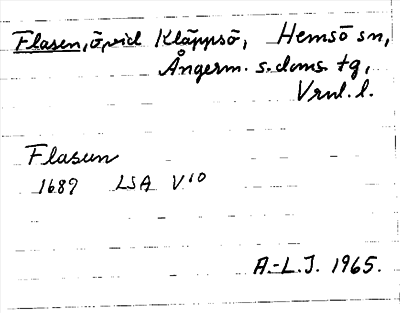 Flasen, ö, vid Kläppsö, Hemsö sn,
Ångerm. s. doms. tg,
Vrnl. l.
Flasun
1689 LSA V10
A.-L.J. 1965.